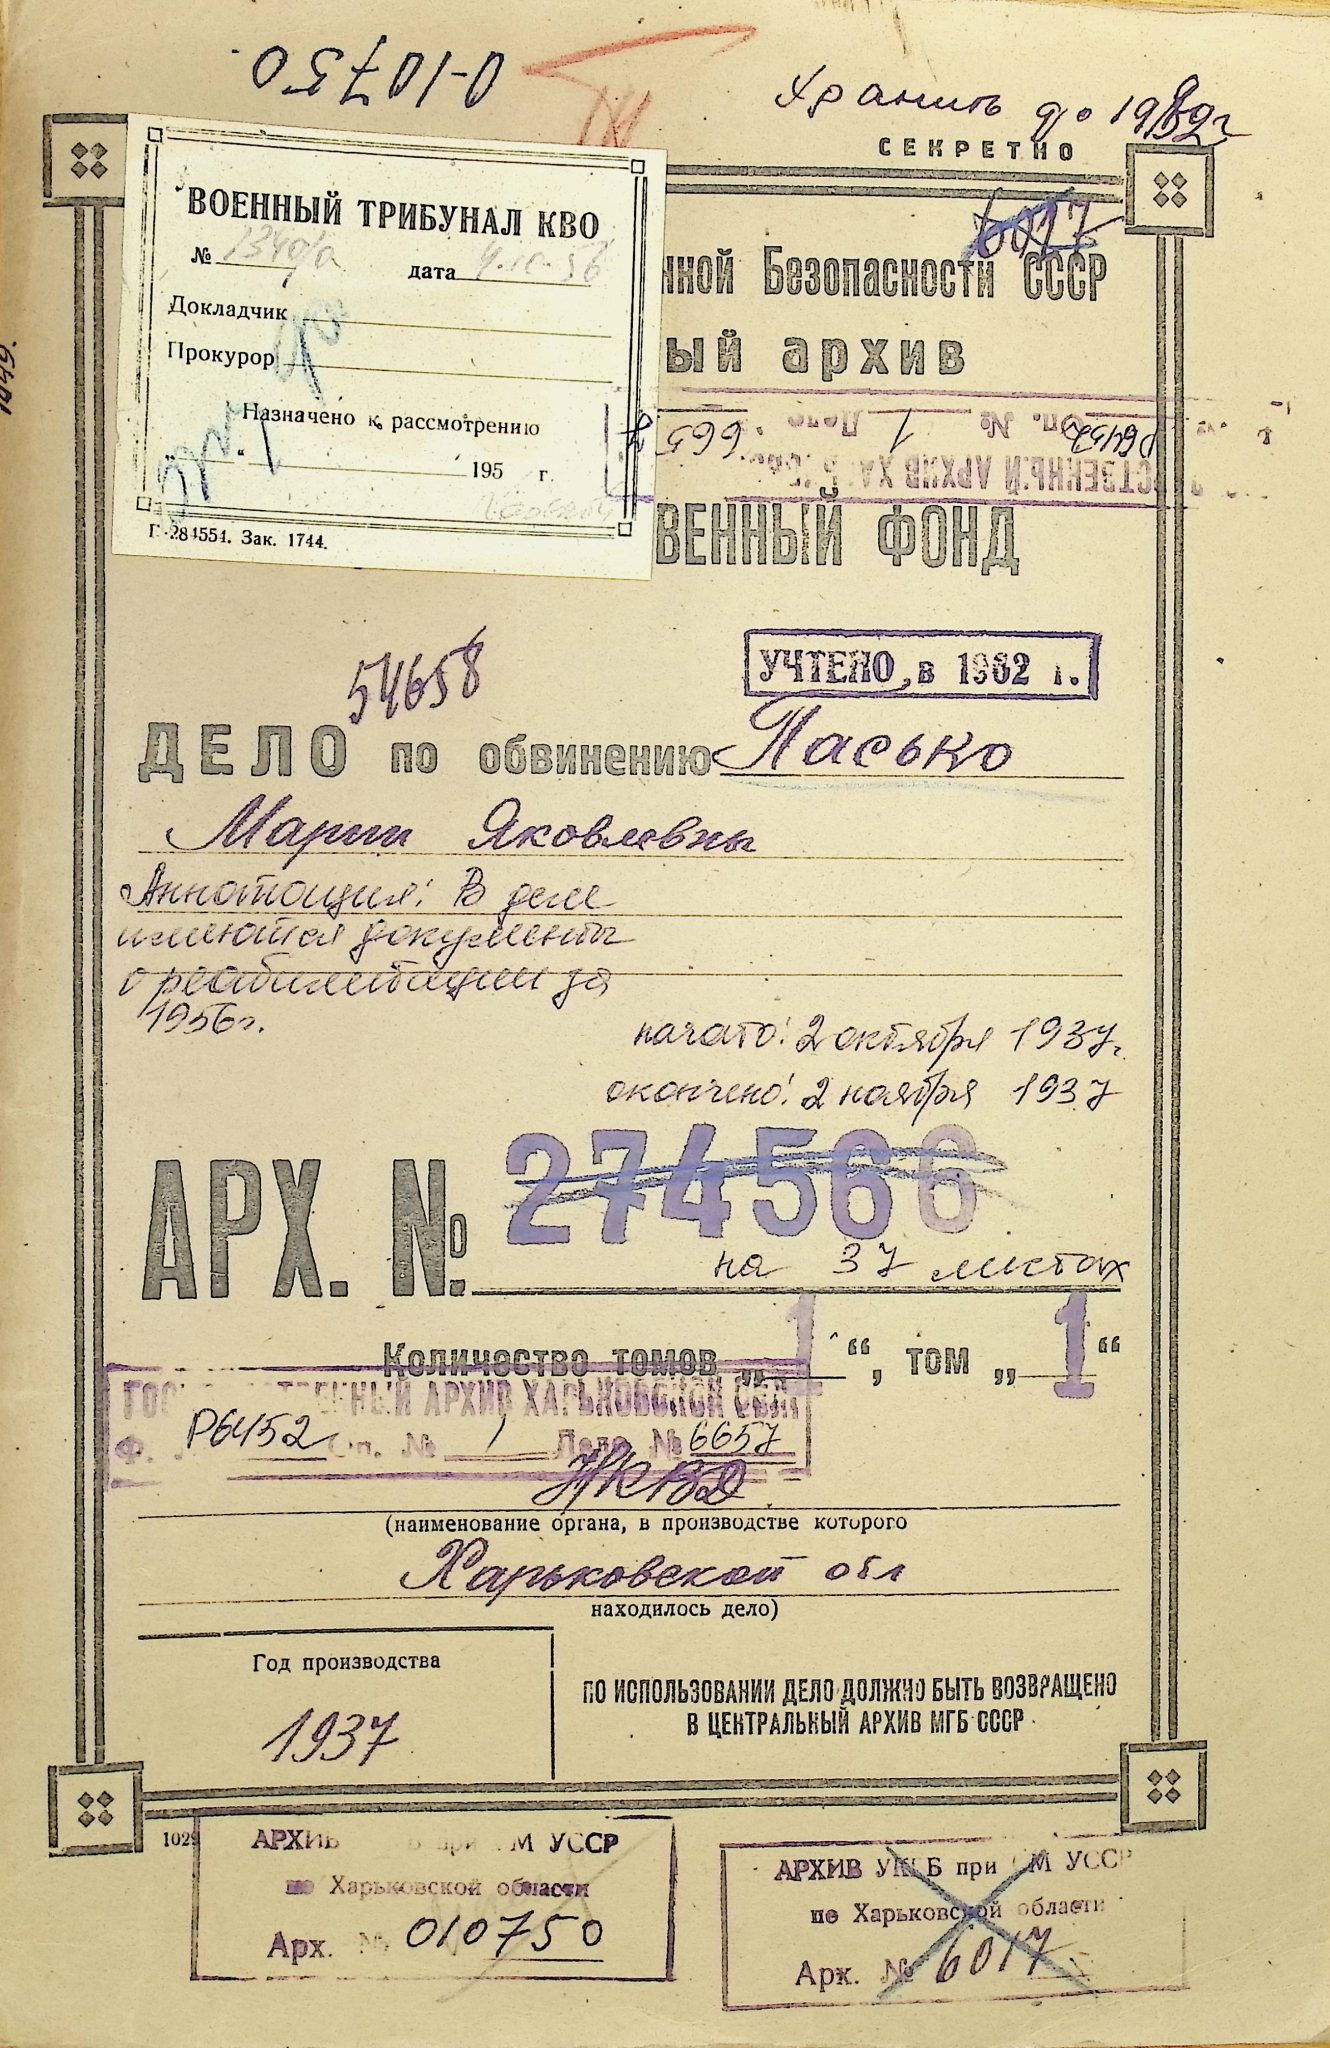 О-10750
Хранить до 1989 г
СЕКРЕТНО
6017
ВОЕННЫЙ ТРИБУНАЛ КВО
№ дата
Докладчик
Прокурор
Назначено к рассмотрению
„ “ 195 г.
Г-284554. Зак. 1744.
нной Безопасности СССР
ый архив
Р6452 Оп. № 1 Дело 6657
СТВЕННЫЙ АРХИВ
ВЕННЫЙ ФОНД
УЧТЕНО в 1962 г.
54658
ДЕЛО по обвинению Пасько
Марии Яковлевны
Аннотация: В деле
имеются документы
о реабилитации за
1956 г.
начато: 2 октября 1937 г.
окончено: 2 ноября 1937
АРХ. № 274566
на 37 листах
Количество томов „1“, том „1“
ГОСУДАРСТВЕННЫЙ АРХИВ ХАРЬКОВСКОЙ ОБЛ
Ф. Р6452 Оп. № 1 Дело № 6657
НКВД
(наименование органа, в производстве которого
Харьковской обл
находилось дело)
Год производства
1937
ПО ИСПОЛЬЗОВАНИИ ДЕЛО ДОЛЖНО БЫТЬ ВОЗВРАЩЕНО
В ЦЕНТРАЛЬНЫЙ АРХИВ МГБ СССР
1029
АРХИВ при СМ УССР
по Харьковской области
Арх. № 010750
АРХИВ УКГБ при СМ УССР
по Харьковской области
Арх. № 6017